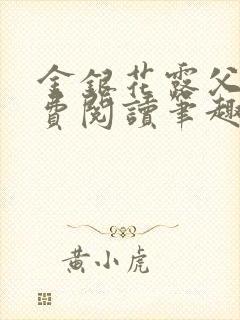 金銀花露父
費閱讀筆趣
黃小虎